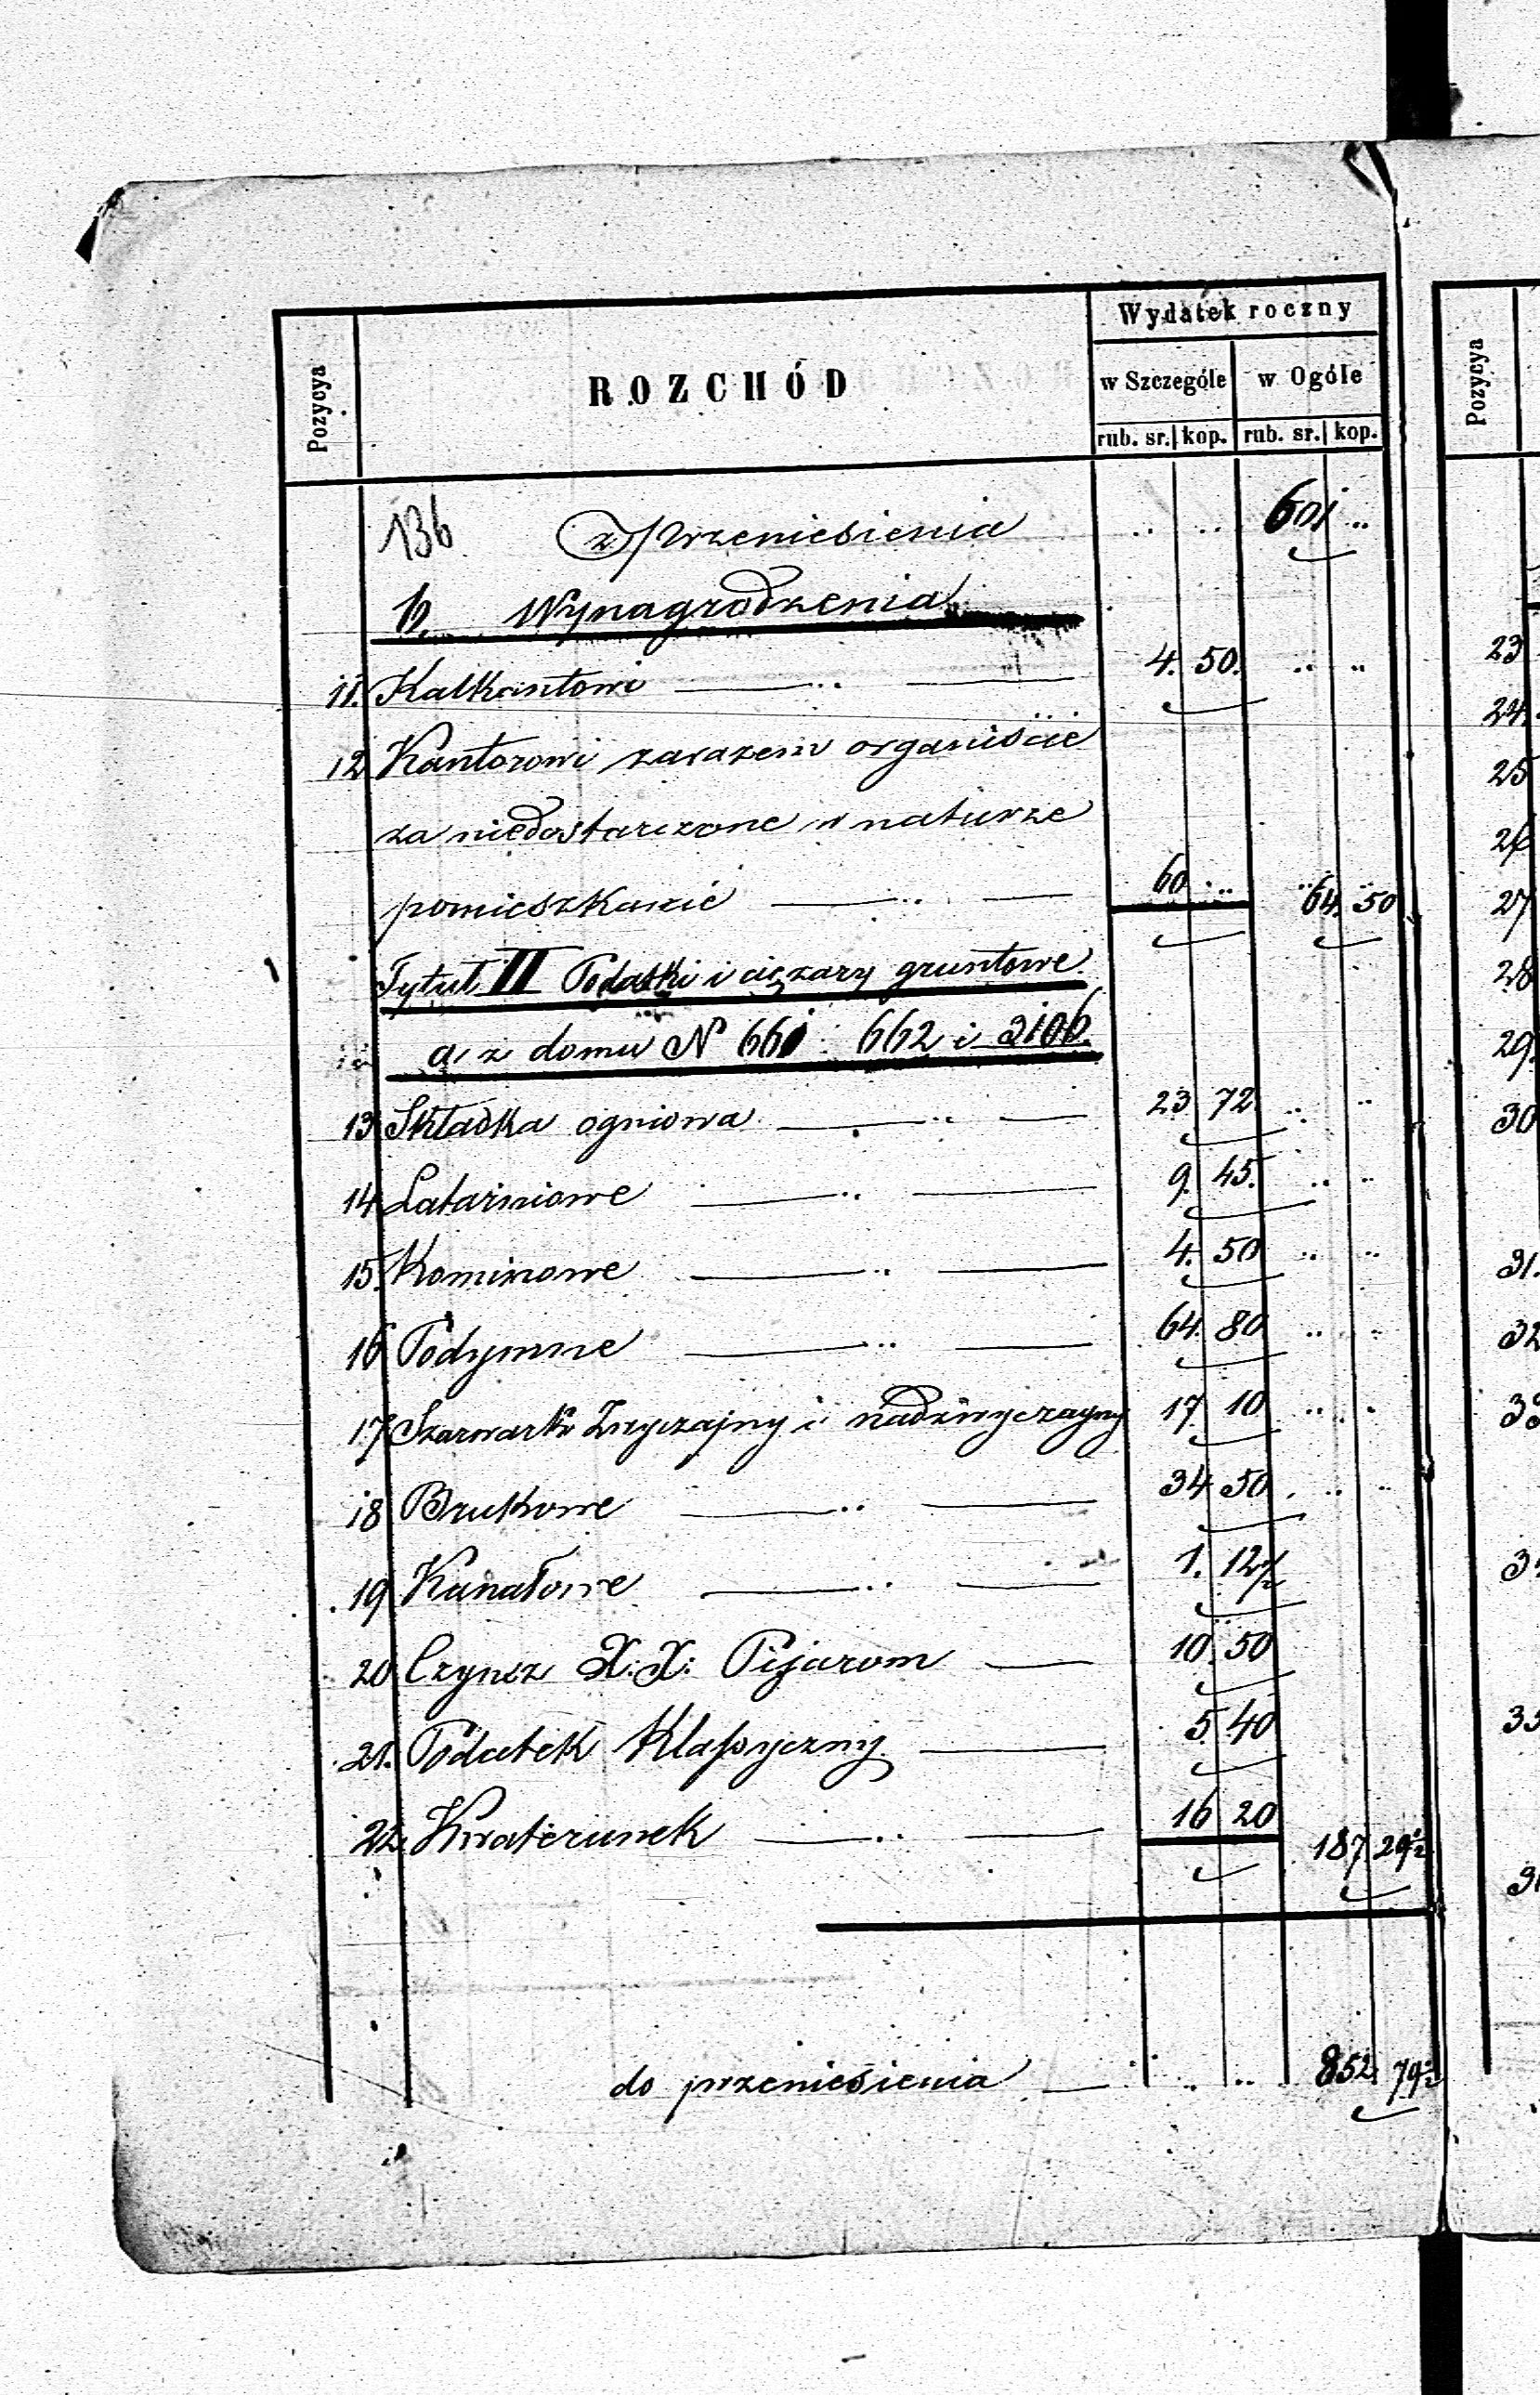 Wydatek roczny
Pozycya ROZCHÓD w Szczególe w Ogóle
rub. sr. kop. rub. sr. kop.
136 z przeniesienia .. .. 601 ..
b. Wynagrodzenia
11. Kalkantowi — .. — 4. 50. .. ..
12 Kantorowi zarazem organiście
za niedostarczone w naturze
pomieszkanie — .. — 60 .. 64. 50
Tytuł II Podatki i ciężary gruntowe
a, z domu N 661 662 i 3106.
13 Składka ogniowa — .. — 23 72 .. ..
14 Latarniowe — .. — 9. 45. .. ..
15. Kominowe — .. — 4. 50 .. ..
16 Podymne — .. — 64. 80 .. ..
17 Szarwark Zwyczajny i nadzwyczajny 17 10 .. ..
18 Brukowe — .. — 34 50 .. ..
19 Kanałowe — .. — 1. 12½
20 Czynsz X.X. Pijarom — 10. 50
21. Podatek Klassyczny — 5 40
22. Kwaterunek — .. — 16 20 187. 29½
do przeniesienia — .. .. 852 79½
Pozycya
23
24
25
26
27
28
29
30
31.
32